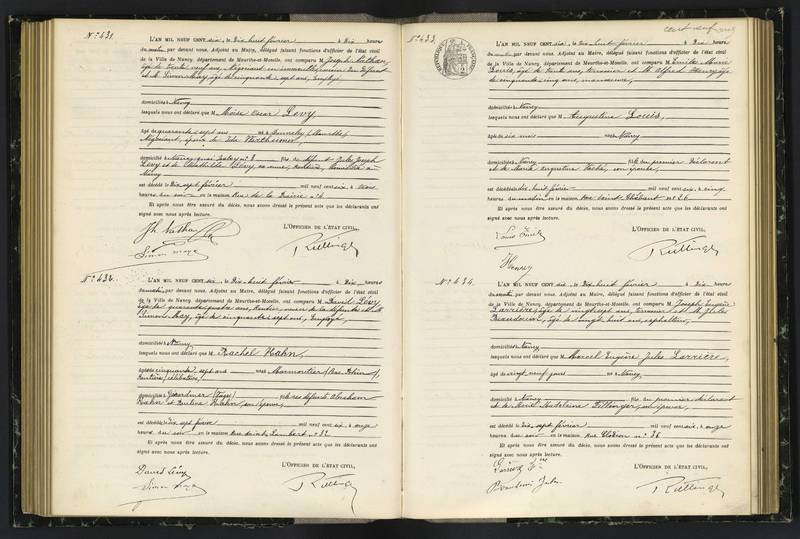 N° 431.
L'AN MIL NEUF CENT six, le Dix huit février à Dix heures
du matin, par devant nous, Adjoint au Maire, délégué faisant fonctions d'officier de l'état civil
de la Ville de Nancy, département de Meurthe-et-Moselle, ont comparu M. Joseph Nathan,
âgé de trente neuf ans, Négociant du défunt
et M. Simon May, âgé de cinquante sept ans, Employé
domiciliés à Nancy
lesquels nous ont déclaré que M. Moïse Oscar Levy,
âgé de quarante sept ans né à (Meurthe)
Négociant, époux de Ida Wertheimer,
domicilié à Nancy, n° 8 fils de défunt Jules Joseph
Lévy et de Lévy, sa veuve, rentière, domiciliée à
Nancy
est décédé le Dix sept février mil neuf cent six, à
heures du soir en la maison Rue de la Prairie n° 6
Et après nous être assuré du décès, nous avons dressé le présent acte que les déclarants ont
signé avec nous après lecture.
L'OFFICIER DE L'ÉTAT CIVIL,
Jh. Nathan
Simon May
N° 432.
L'AN MIL NEUF CENT six, le Dix huit février à Dix heures
du matin, par devant nous, Adjoint au Maire, délégué faisant fonctions d'officier de l'état civil
de la Ville de Nancy, département de Meurthe-et-Moselle, ont comparu M. David Lévy,
âgé de quarante quatre ans, Rentier, neveu de la défunte et M.
Simon May, âgé de cinquante sept ans, Employé,
domiciliés à Nancy
lesquels nous ont déclaré que M. Rachel Kahn,
âgée de cinquante sept ans née à Marmoutier (Bas-Rhin),
Rentière, célibataire,
domiciliée à Gérardmer (Vosges) fille des défunts Abraham
Kahn et Pauline Blahn, son épouse,
est décédée le Dix sept février mil neuf cent six, à onze
heures du soir en la maison Rue Saint Lambert n° 32
Et après nous être assuré du décès, nous avons dressé le présent acte que les déclarants ont
signé avec nous après lecture.
L'OFFICIER DE L'ÉTAT CIVIL,
David Lévy
Simon May
N° 433.
L'AN MIL NEUF CENT six, le Dix huit février à Dix heures
du matin, par devant nous, Adjoint au Maire, délégué faisant fonctions d'officier de l'état civil
de la Ville de Nancy, département de Meurthe-et-Moselle, ont comparu M. Emile Marie
Louis, âgé de trente ans, et M. Alfred Henry, âgé
de cinquante cinq ans, manœuvre,
domiciliés à Nancy
lesquels nous ont déclaré que M. Augustine Louis,
âgée de six mois née à Nancy
domiciliée à Nancy fille du premier déclarant
et de Marie Augustine Vaché, son épouse,
est décédée le dix huit février mil neuf cent six, à cinq
heures du matin en la maison Rue Saint Thiébaut n° 26
Et après nous être assuré du décès, nous avons dressé le présent acte que les déclarants ont
signé avec nous après lecture.
L'OFFICIER DE L'ÉTAT CIVIL,
Louis Emile
Henry
N° 434.
L'AN MIL NEUF CENT six, le Dix huit février à Dix heures
du matin, par devant nous, Adjoint au Maire, délégué faisant fonctions d'officier de l'état civil
de la Ville de Nancy, département de Meurthe-et-Moselle, ont comparu M. Joseph Eugène
Larrière, âgé de vingt sept ans, et M. Jules
Beaudouin, âgé de vingt huit ans,
domiciliés à Nancy
lesquels nous ont déclaré que M. Marcel Eugène Jules Larrière,
âgé de vingt neuf jours né à Nancy,
domicilié à Nancy fils du premier déclarant
et de Marie Madeleine son épouse,
est décédé le dix sept février mil neuf cent six, à onze
heures du soir en la maison Rue n° 36
Et après nous être assuré du décès, nous avons dressé le présent acte que les déclarants ont
signé avec nous après lecture.
L'OFFICIER DE L'ÉTAT CIVIL,